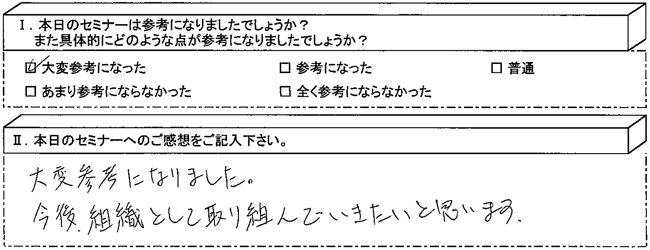 Ⅰ. 本日のセミナーは参考になりましたでしょうか?
また具体的にどのような点が参考になりましたでしょうか?
☑ 大変参考になった □ 参考になった □ 普通
□ あまり参考にならなかった □ 全く参考にならなかった
Ⅱ. 本日のセミナーへのご感想をご記入下さい。
大変参考になりました。
今後、組織として取り組んでいきたいと思います。